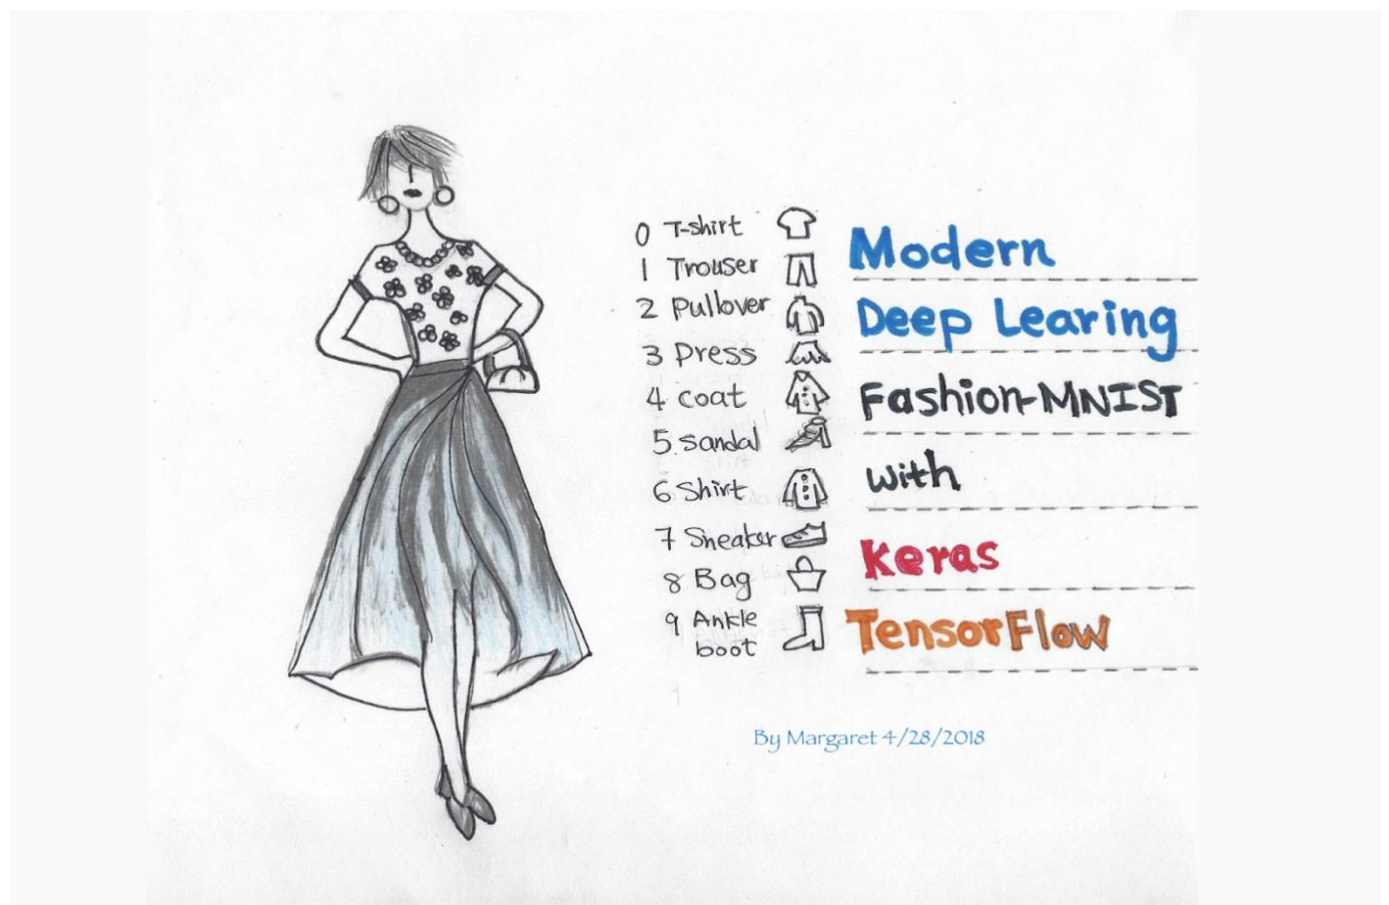 0 T-shirt
1 Trouser
2 Pullover
3 Press
4 coat
5. sandal
6 Shirt
7 Sneaker
8 Bag
9 Ankle
boot
Modern
Deep Learing
Fashion-MNIST
with
Keras
TensorFlow
By Margaret 4/28/2018